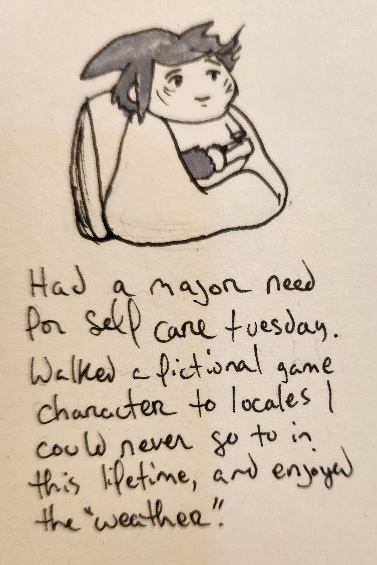 Had a major need
for self care tuesday.
Walked a fictional game
character to locales I
could never go to in
this lifetime, and enjoyed
the "weather".